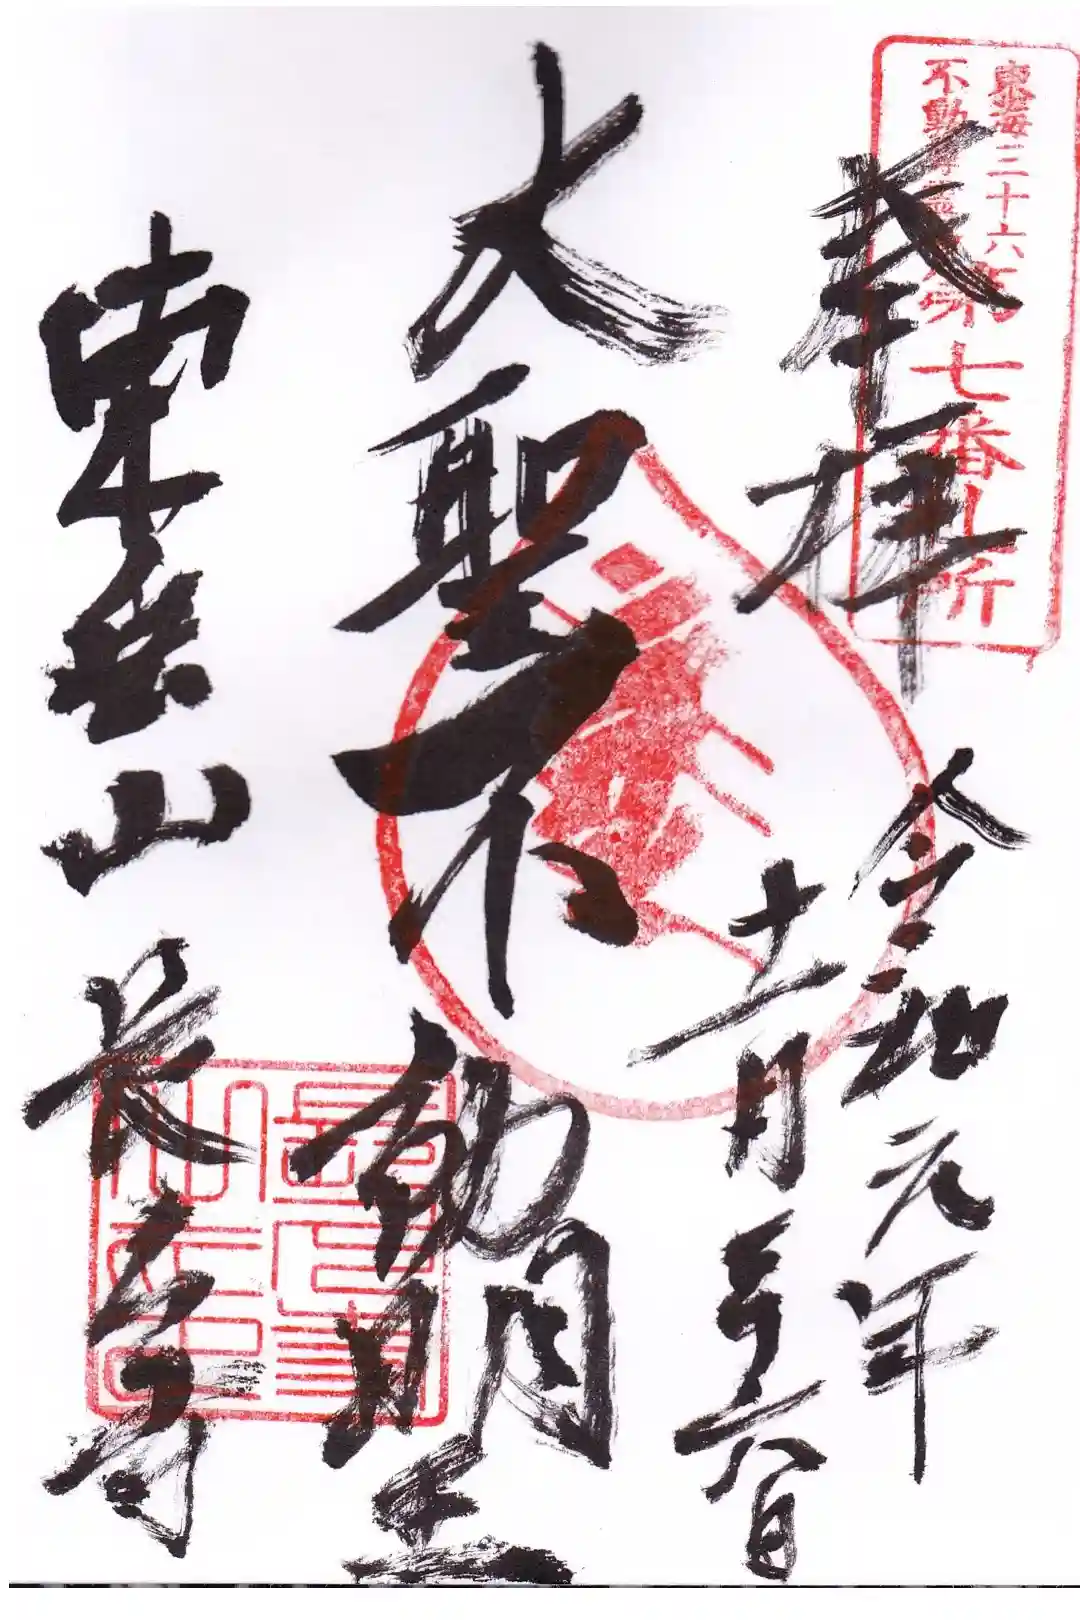 東海三十六
不動尊霊場
第七番札所
奉拝
令和元年
十一月
大聖不動明王
東岳山長久寺